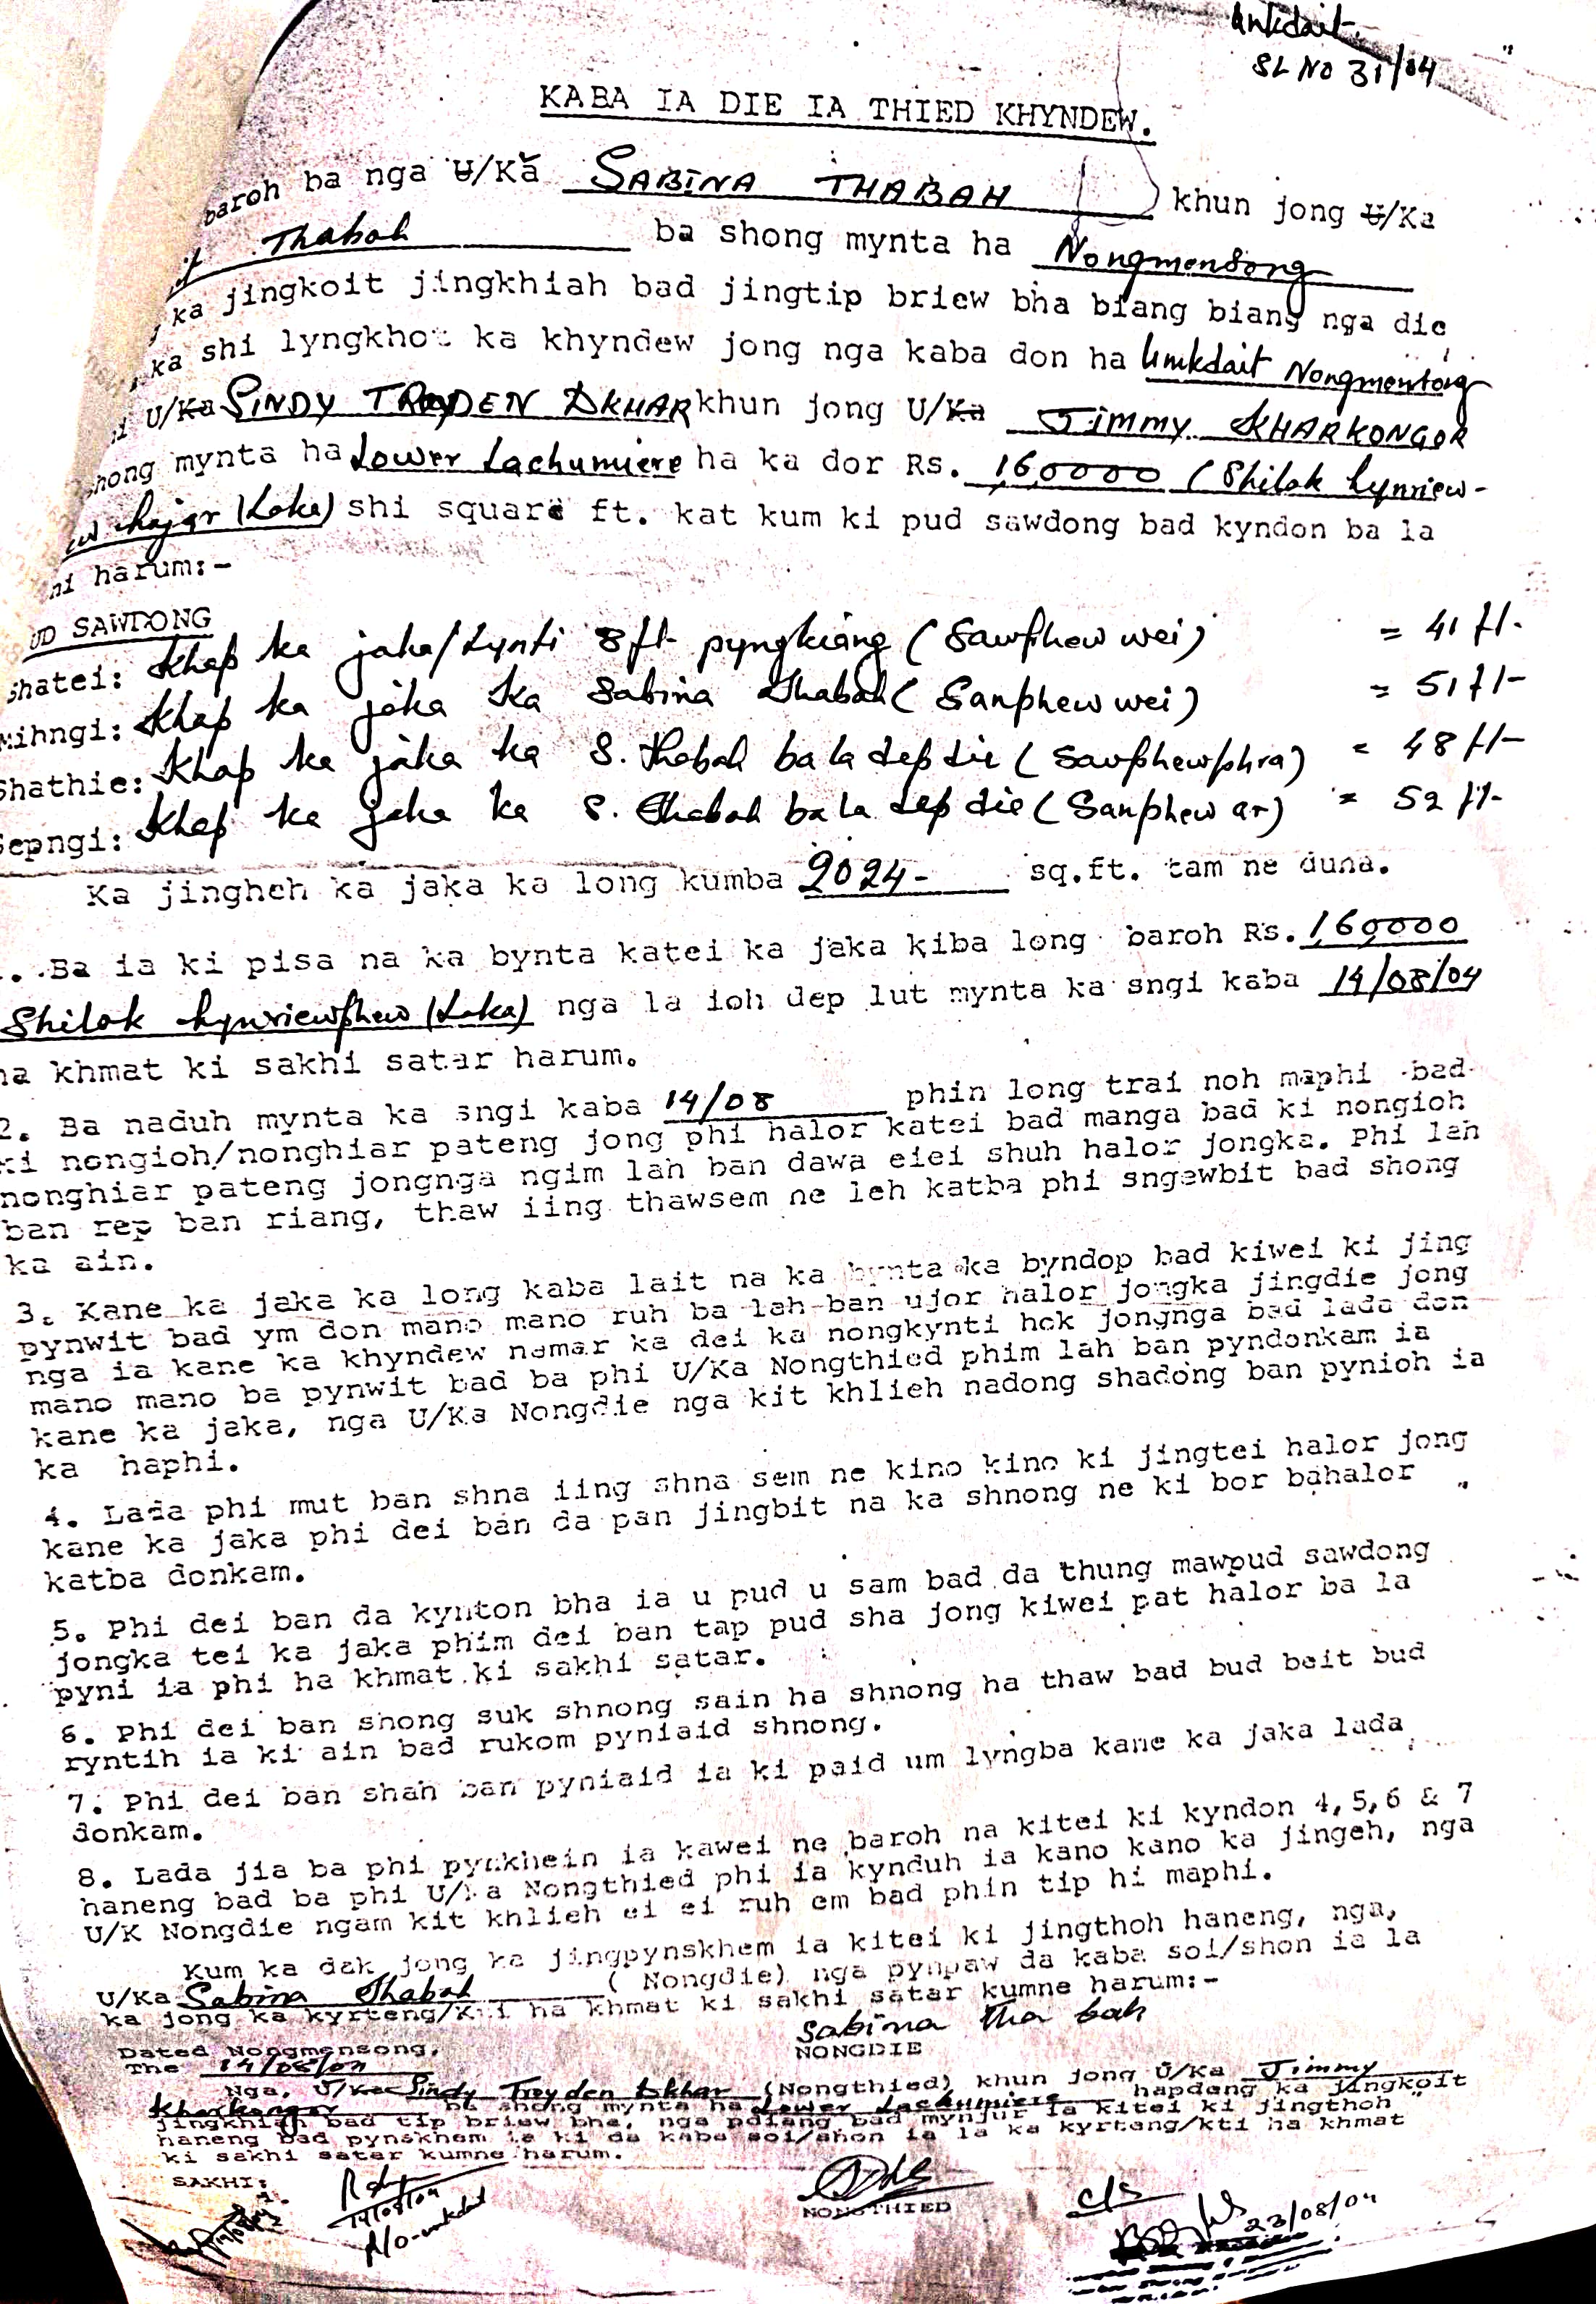 Umkdait.
SL NO 31/04
KABA IA DIE IA THIED KHYNDEW.
baroh ba nga U/Ka SABINA THABAH khun jong U/Ka
Thabah ba shong mynta ha Nongmensong
ka jingkoit jingkhiah bad jingtip briew bha biang biang nga die
ka shi lyngkhot ka khyndew jong nga kaba don ha Umkdait Nongmensong
U/Ka SINDY TROYDEN DKHAR khun jong U/Ka JIMMY KHARKONGOR
hong mynta ha Lower Lachumiere ha ka dor Rs. 1,60000 (Shilak hynriew-
ew hajar (Laka) shi square ft. kat kum ki pud sawdong bad kyndon ba la
ni harum:-
UD SAWDONG
Shatei: Khap ka jaka/Lynti 8ft pyngkiang (Sawphew wei) = 41 ft-
Mihngi: Khap ka jaka ka Sabina Thabah (Sanphew wei) = 51 ft-
Shathie: Khap ka jaka ka S. Thabah ba la dep die (Sawphewphra) = 48 ft-
Sepngi: Khap ka jaka ka S. Thabah ba la dep die (Sanphew ar) = 52 ft-
Ka jingheh ka jaka ka long kumba 2024- sq.ft. tam ne duna.
. Ba ia ki pisa na ka bynta katei ka jaka kiba long baroh Rs. 1,60000
Shilak hynriewphew (Laka) nga la ioh dep lut mynta ka sngi kaba 14/08/04
ha khmat ki sakhi satar harum.
2. Ba naduh mynta ka sngi kaba 14/08 phin long trai noh maphi bad
ki nongioh/nonghiar pateng jong phi halor katei bad manga bad ki nongioh
nonghiar pateng jongnga ngim lah ban dawa eiei shuh halor jongka. Phi lah
ban rep ban riang, thaw iing thawsem ne leh katba phi sngewbit bad shong
ka ain.
3. Kane ka jaka ka long kaba lait na ka bynta ka byndop bad kiwei ki jing
pynwit bad ym don mano mano ruh ba lah ban ujor halor jongka jingdie jong
nga ia kane ka khyndew namar ka dei ka nongkynti hok jongnga bad lada don
mano mano ba pynwit bad ba phi U/Ka Nongthied phim lah ban pyndonkam ia
kane ka jaka, nga U/Ka Nongdie nga kit khlieh nadong shadong ban pynioh ia
ka haphi.
4. Lada phi mut ban shna iing shna sem ne kino kino ki jingtei halor jong
kane ka jaka phi dei ban da pan jingbit na ka shnong ne ki bor bahalor
katba donkam.
5. Phi dei ban da kynton bha ia u pud u sam bad da thung mawpud sawdong
jongka tei ka jaka phim dei ban tap pud sha jong kiwei pat halor ba la
pyni ia phi ha khmat ki sakhi satar.
6. Phi dei ban shong suk shnong sain ha shnong ha thaw bad bud beit bud
ryntih ia ki ain bad rukom pyniaid shnong.
7. Phi dei ban shah ban pyniaid ia ki paid um lyngba kane ka jaka lada
donkam.
8. Lada jia ba phi pynkhein ia kawei ne baroh na kitei ki kyndon 4,5,6 & 7
haneng bad ba phi U/Ka Nongthied phi ia kynduh ia kano kano ka jingeh, nga
U/K Nongdie ngam kit khlieh ei ei ruh em bad phin tip hi maphi.
Kum ka dak jong ka jingpynskhem ia kitei ki jingthoh haneng, nga,
U/Ka Sabina Thabah (Nongdie) nga pynpaw da kaba soi/shon ia la
ka jong ka kyrteng/Kti ha khmat ki sakhi satar kumne harum:-
Sabina Thabah
NONGDIE
Dated Nongmensong,
The 14/08/04
Nga, U/Ka Sindy Troyden Dkhar (Nongthied) khun jong U/Ka Jimmy
Kharkongor ba shong mynta ha Lower Lachumiere hapdeng ka jingkoit
jingkhiah bad tip briew bha, nga pdiang bad mynjur ia kitei ki jingthoh
haneng bad pynskhem ia ki da kaba soi/shon ia la ka kyrteng/kti ha khmat
ki sakhi satar kumne harum.
SAKHI:
1.
14/08/04
NONGTHIED
C/S
23/08/04